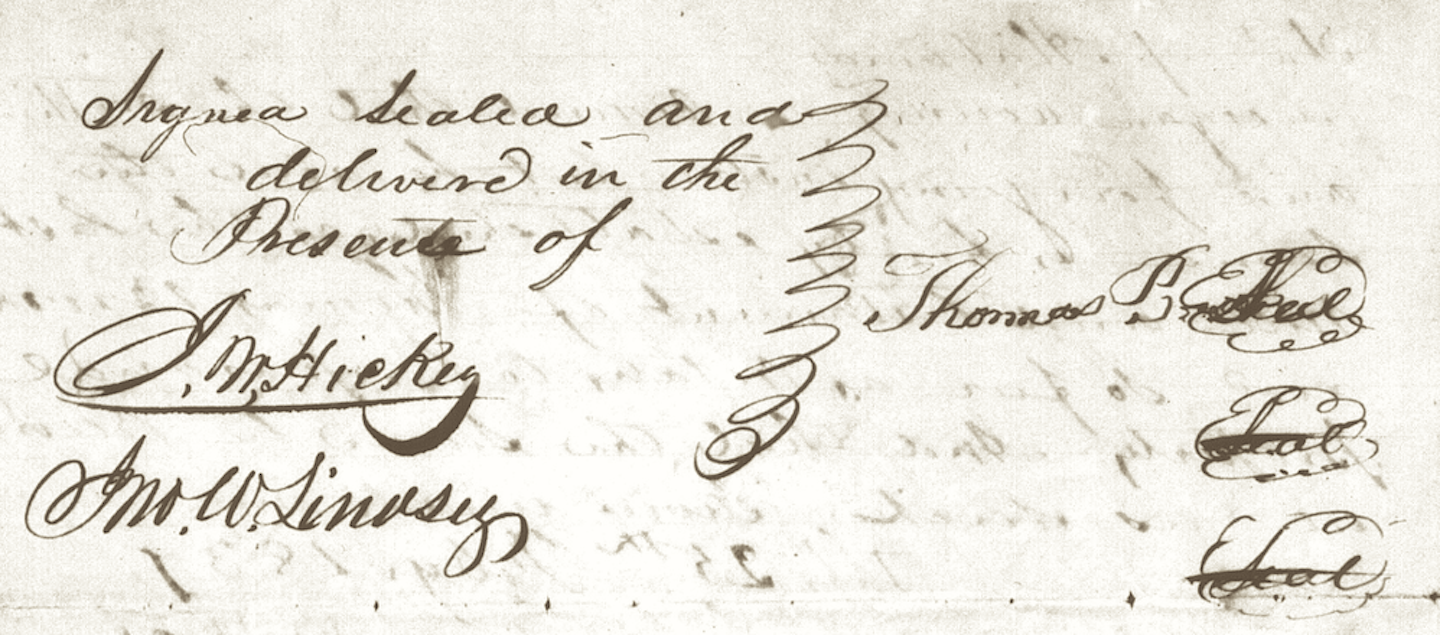 Signed Sealed and
deliverd in the
Presence of
J. W. Hickey
Jno. W. Lindsey
Thomas B Seal
Seal
Seal